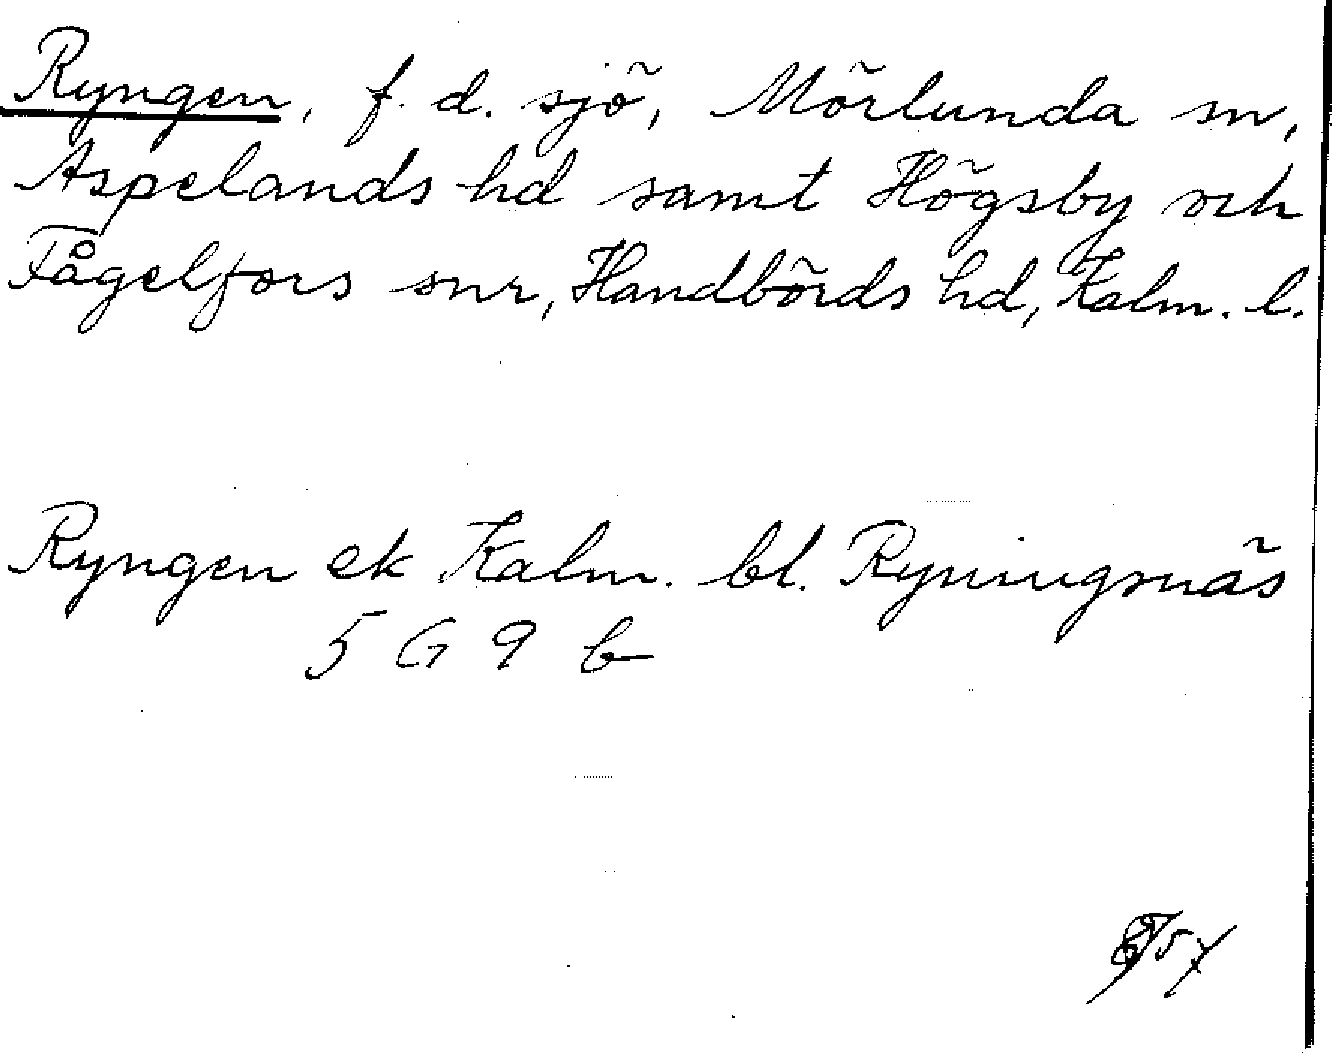 Ryngen, f. d. sjö, Mörlunda sn,
Aspelands hd samt Högsby och
Fågelfors snr, Handbörds hd, Kalm. l.
Ryngen ek Kalm. bl. Ryningsnäs
5 G 9 b